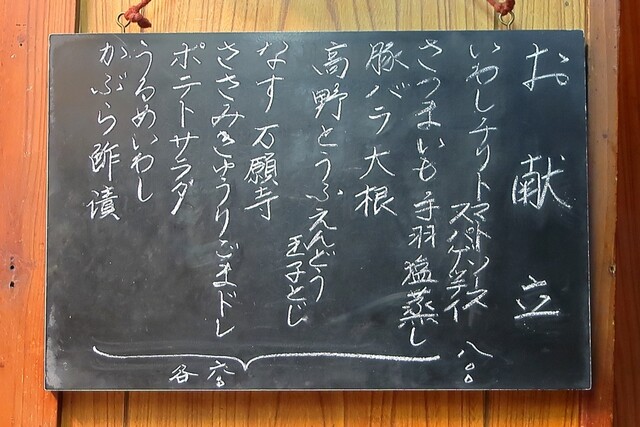 お献立
いわしチリトマトソース
スパゲ半付 八〇〇
さつまいも手羽塩蒸し
豚バラ大根
高野とうふえんどう
玉子とじ
なす 万願寺
ささみきゅうりごまドレ
ポテトサラダ
うるめいわし
かぶら酢漬
各